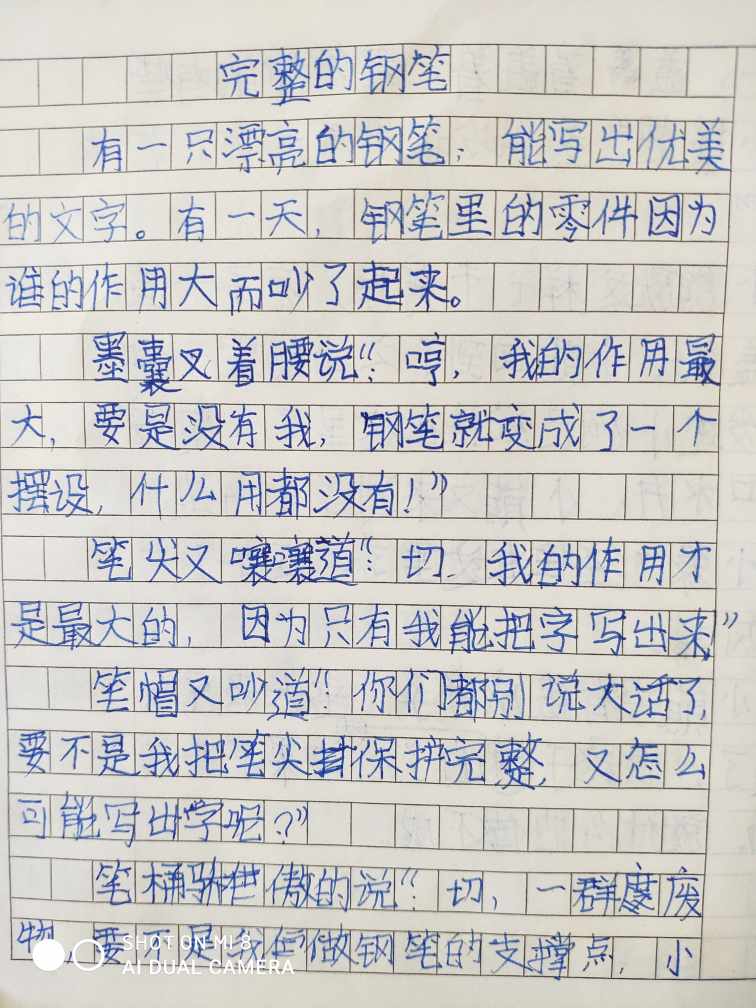 完整的钢笔
有一只漂亮的钢笔，能写出优美
的文字。有一天，钢笔里的零件因为
谁的作用大而吵了起来。
墨囊叉着腰说“：哼，我的作用最
大，要是没有我，钢笔就变成了一个
摆设，什么用都没有！”
笔尖又嚷嚷道“：切，我的作用才
是最大的，因为只有我能把字写出来”
笔帽又吵道“：你们都别说大话了，
要不是我把笔尖保护完整，又怎么
可能写出字呢？”
笔桶骄傲的说“：切，一群废
物，要不是我做钢笔的支撑点，小
SHOT ON MI 8
AI DUAL CAMERA